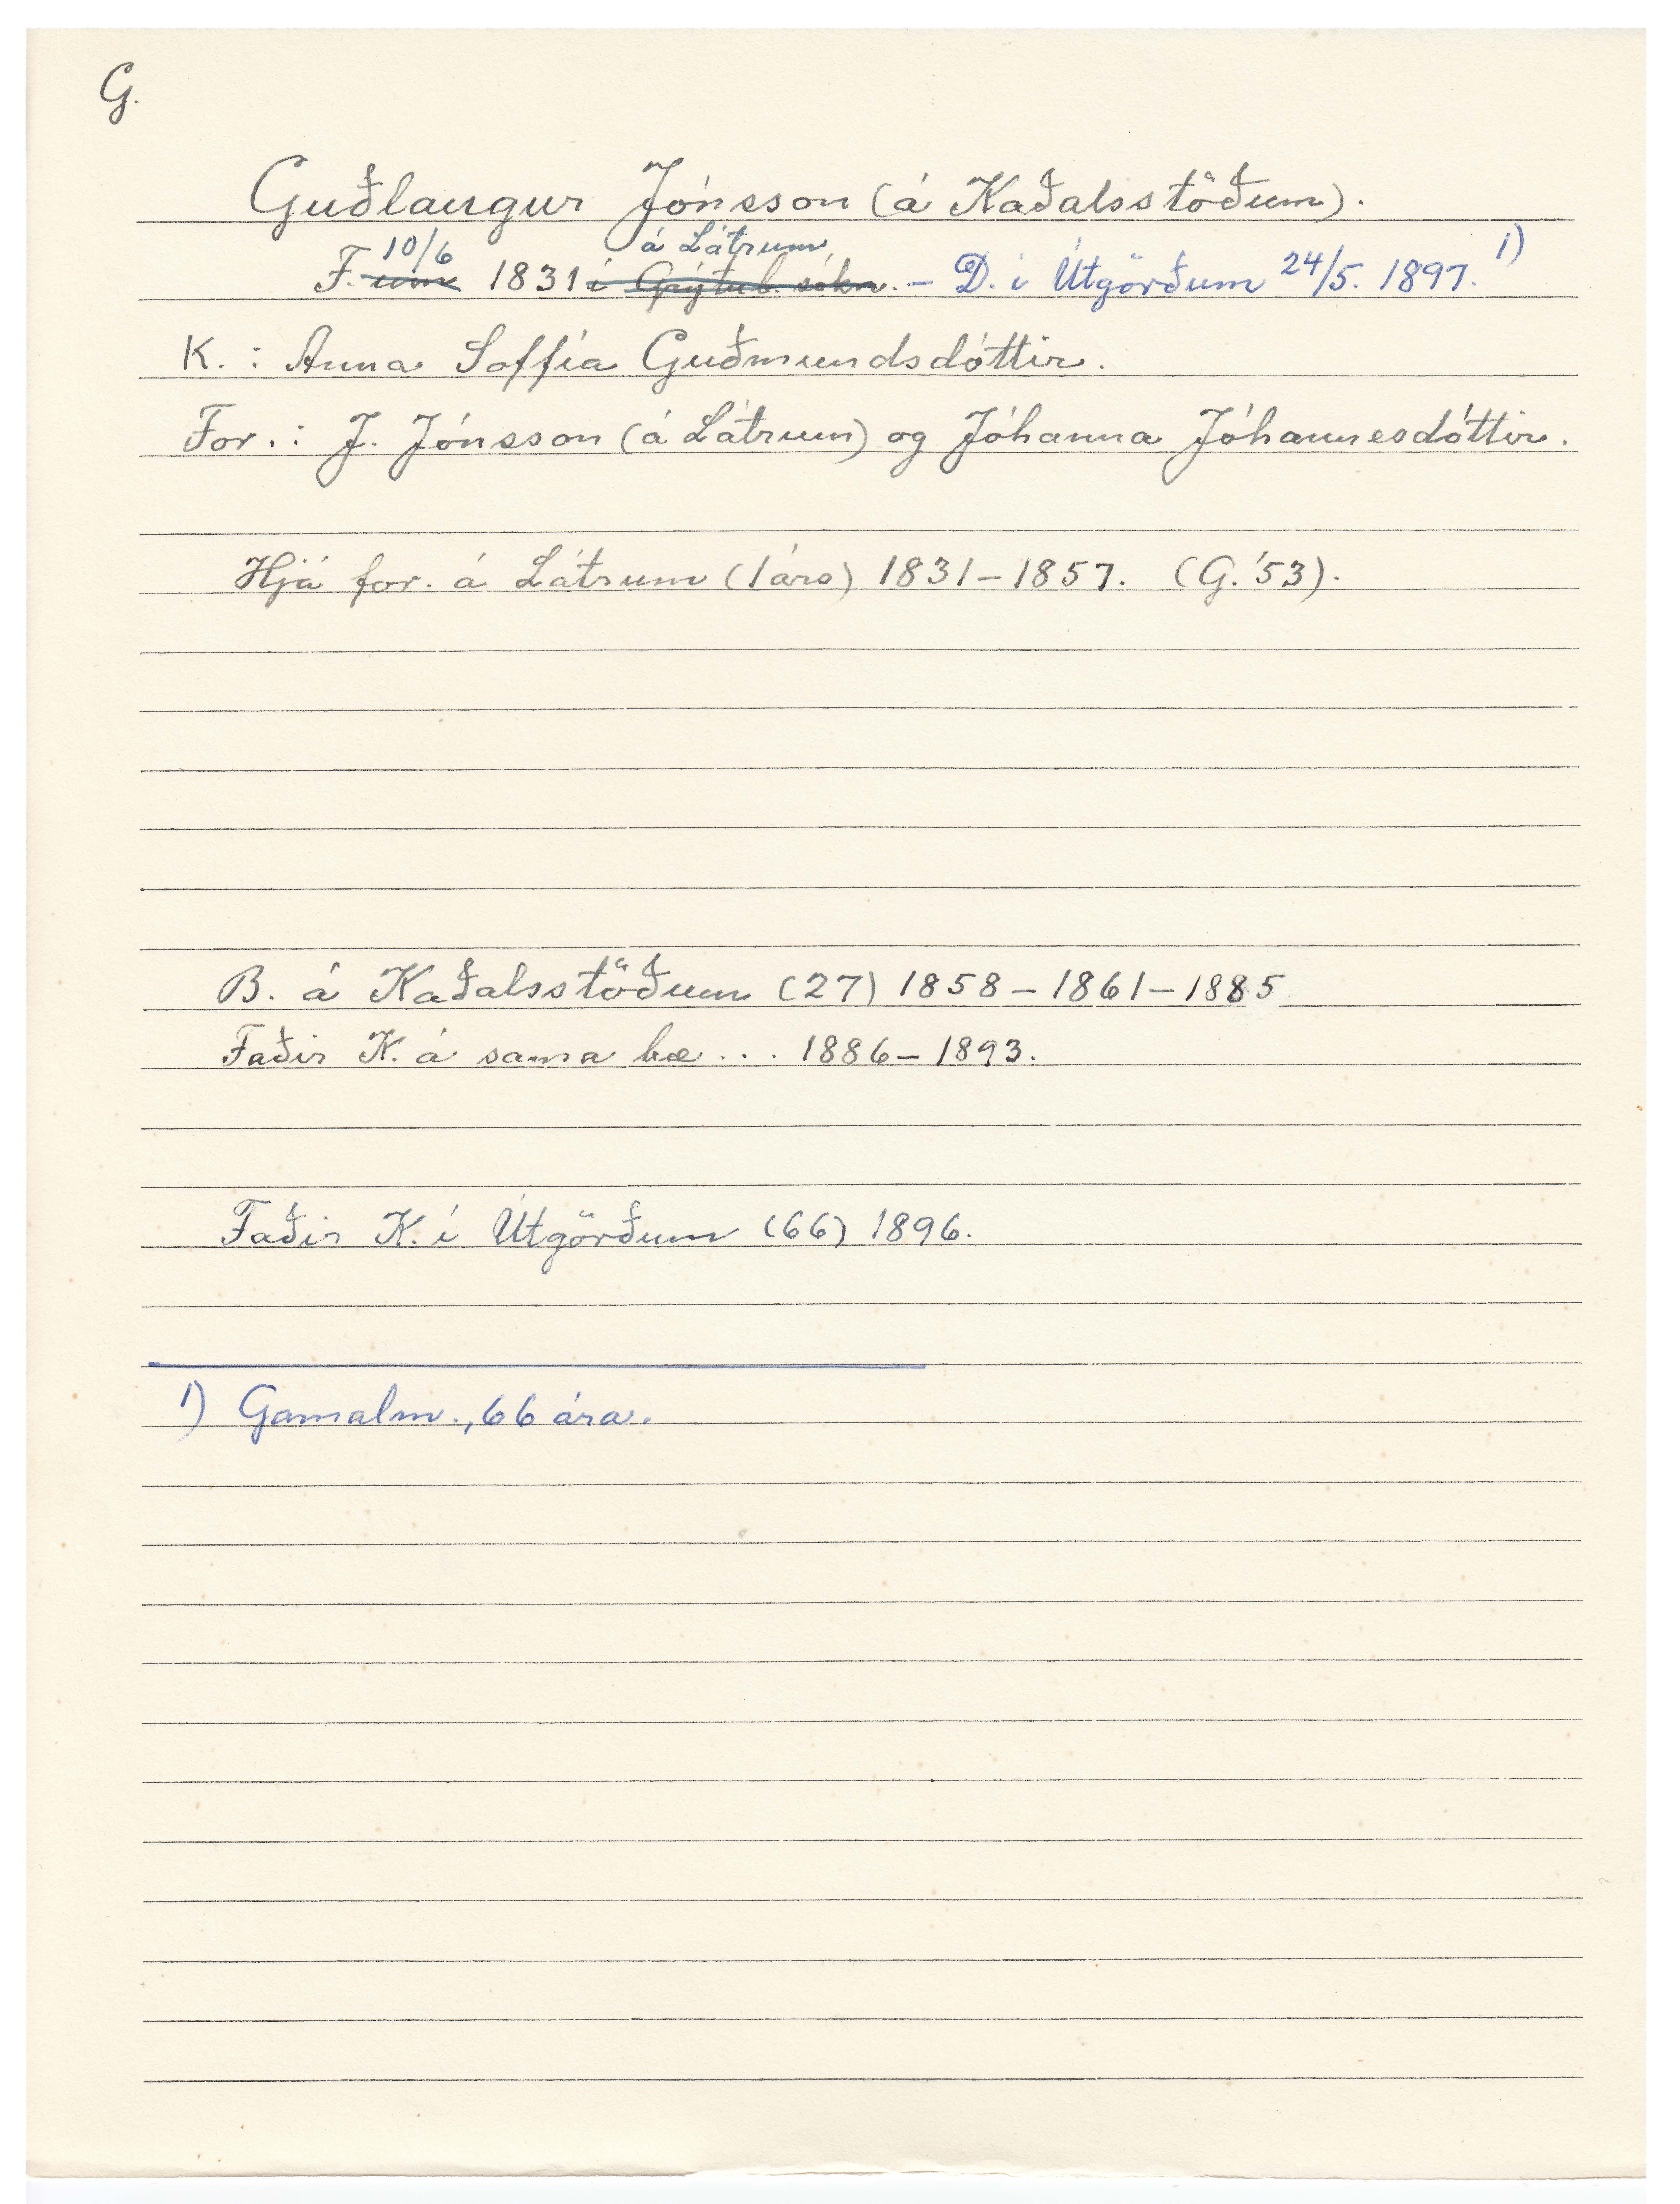 G.
Guðlaugur Jónsson (á Kaðalsstöðum).
10/6 á Látrum
F. um 1831 í Grýtub. sókn. – D. í Útgörðum 24/5. 1897. 1)
K. : Anna Soffía Guðmundsdóttir.
For. : J. Jónsson (á Látrum) og Jóhanna Jóhannesdóttir.
Hjá for. á Látrum (1árs) 1831–1857. (G.'53).
B. á Kaðalsstöðum (27) 1858–1861–1885
Faðir K. á sama bæ . . . 1886–1893.
Faðir K. í Útgörðum (66) 1896.
1) Gamalm., 66 ára.